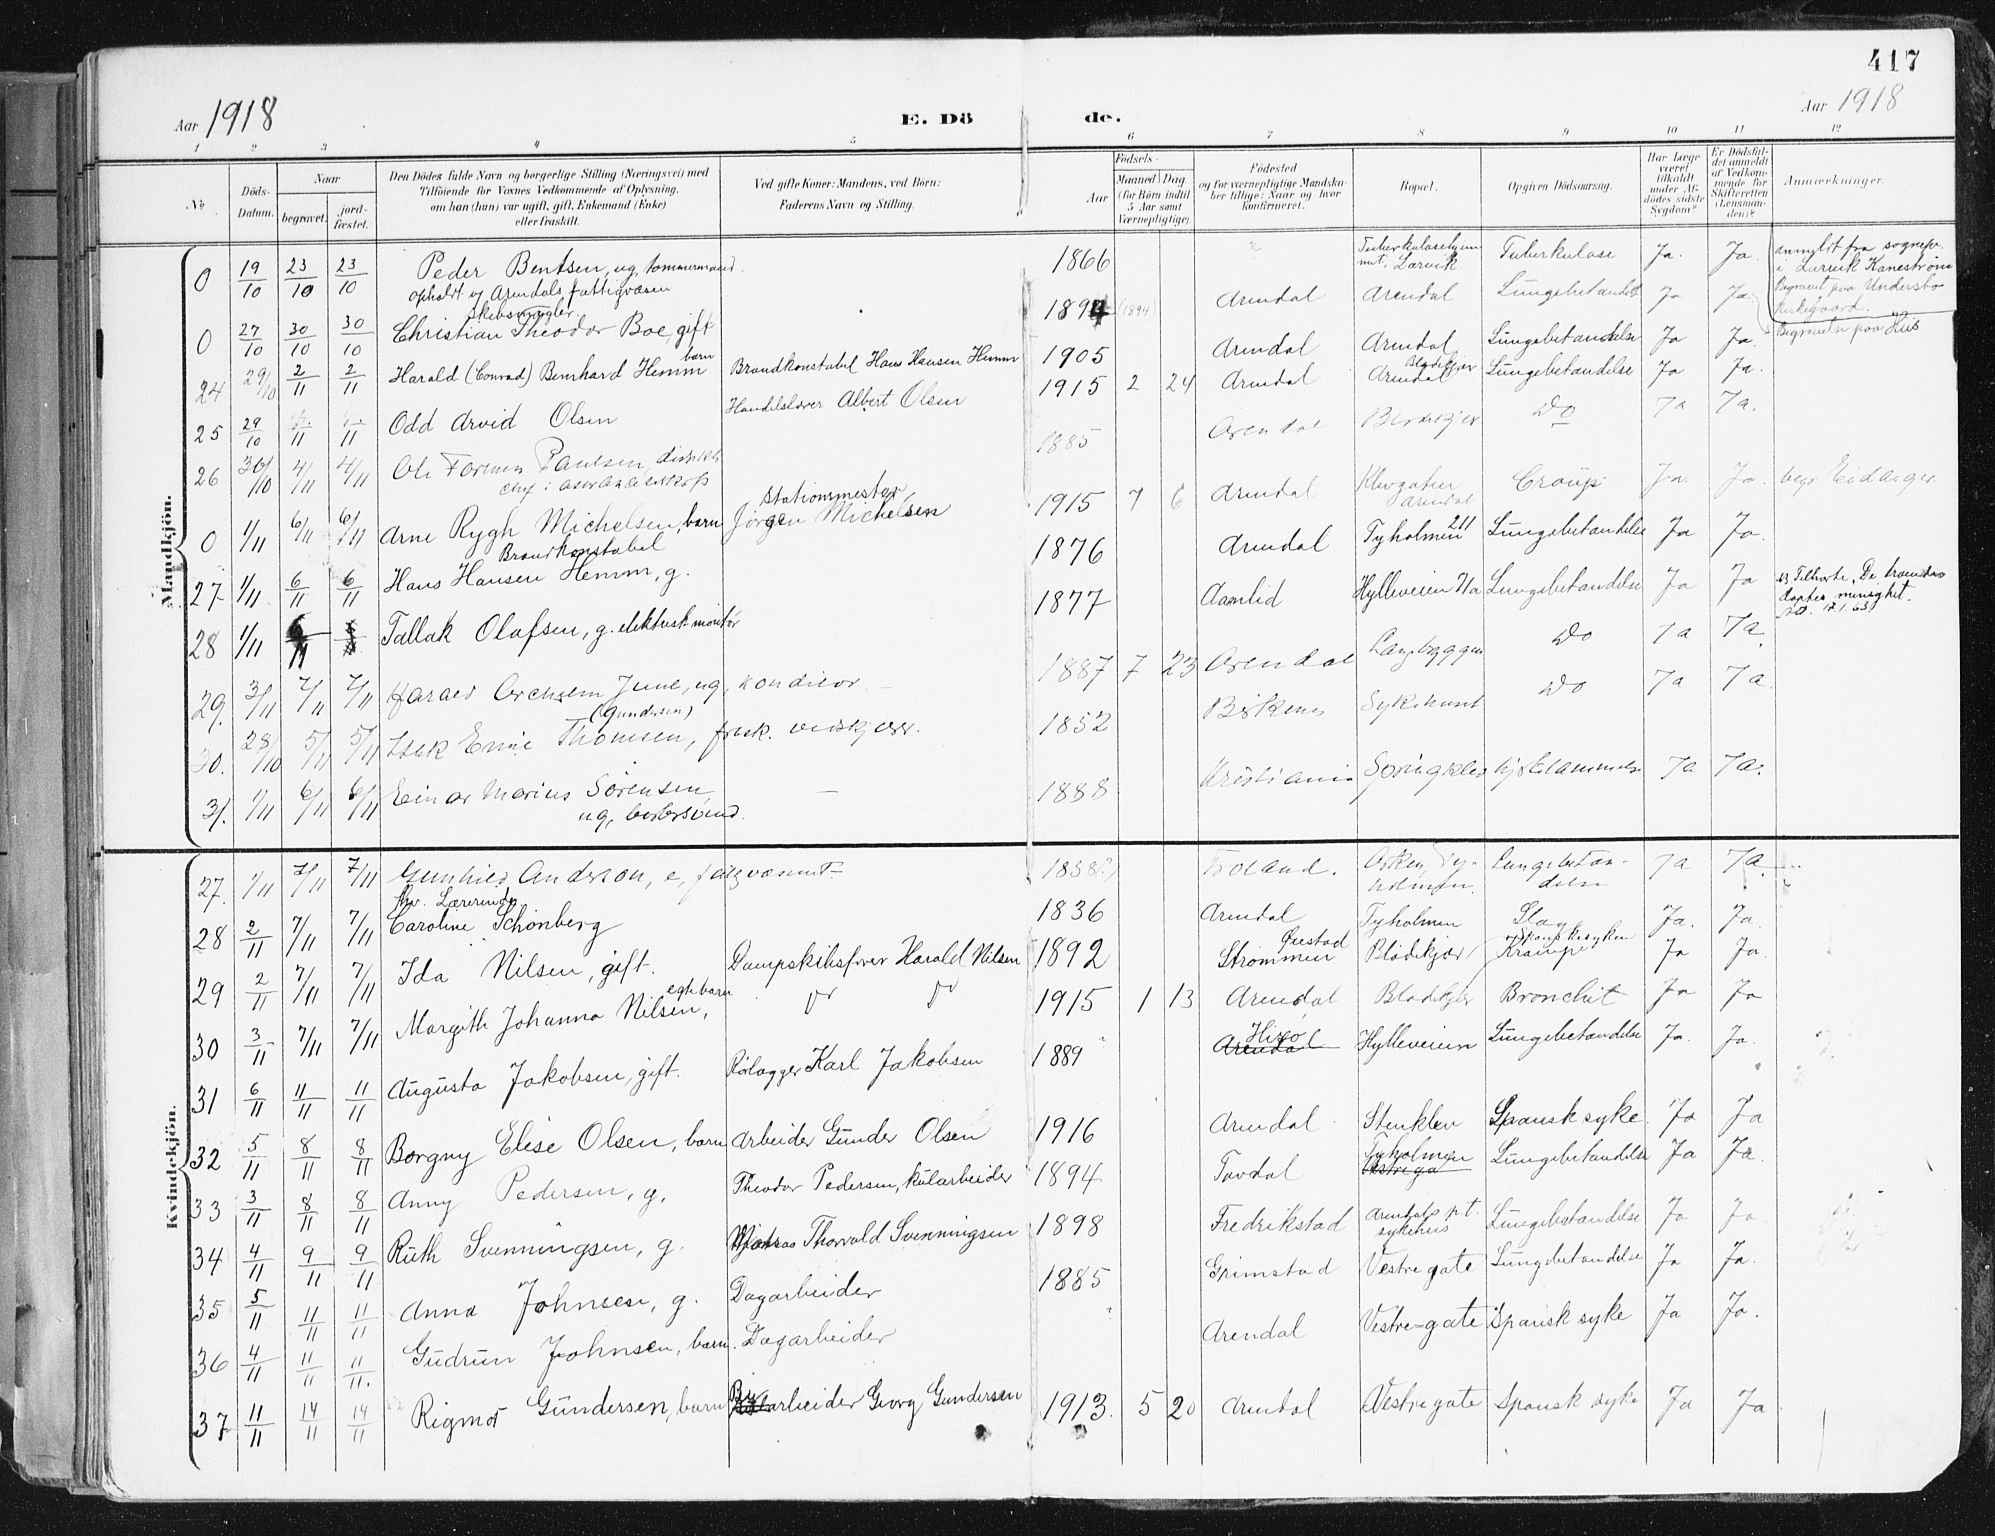 417
Aar 1918
E. Dö
de.
Aar 1918
1 2 3 4 5 6 7 8 9 10 11 12
No
Döds-Datum.
Naar
begravet.
jord-fæstet.
Den Dödes fulde Navn og borgerlige Stilling (Næringsvei) med
Tilföiende for Voxnes Vedkommende af Oplysning,
om han (hun) var ugift, gift, Enkemand (Enke)
eller fraskilt.
Ved gifte Koner: Mandens, ved Börn:
Faderens Navn og Stilling.
Födsels-
Aar
Maaned Dag
(for Börn indtil
5 Aar samt
Værnepligtige).
Födested
og for værnepligtige Mandska-
ber tillige: Naar og hvor
konfirmeret.
Bopæl.
Opgiven Dödsaarsag.
Har Læge
været
tilkaldt
under Af-
dödes sidste
Sygdom?
Er Dödsfal-
det anmeldt
af Vedkom-
mende for
Skifteretten
(Lensman-
den)?
Anmærkninger.
Mandkjön.
0 19/10 23/10 23/10 Peder Bentsen, ug. tømmermand. 1866 Tuberkulosehjem Larvik. Tuberkulose Ja. Ja. anmeldt fra sognepr. i Larvik Kaneström
opholdt og Arendals fattigvæsen
Begravet paa Undersbo Kirkegaard.
Skibsmægler
0 27/10 30/10 30/10 Christian Theodor Boe, gift 1894 (1894) Arendal Arendal Lungebetændelse Ja Ja. Begravelse paa His
24 29/10 2/11 2/11 Harald (Conrad) Bernhard Hemm barn Brandkonstabel Hans Hansen Hemm 1905 Arendal Arendal Lungebetændelse Ja Ja.
25 29/10 /11 /11 Odd Arvid Olsen Handelslærer Albert Olsen 1915 2 24 Arendal Arendal Blødekjær Lungebetændelse Ja Ja.
26 30/10 4/11 4/11 Ole Paulsen, 1885 Arendal Blødekjær Do Ja Ja.
0 1/11 6/11 6/11 Arne Rygh Michelsen, barn Stationsmester Jörgen Michelsen 1915 7 6 Arendal Arendal Croup Ja. Ja. begr. Eidanger
Brandkonstabel
27 1/11 6/11 6/11 Hans Hansen Hemm, g. 1876 Arendal Tyholmen 211 Lungebetændelse Ja Ja.
28 1/11 6/11 Tallak Olafsen, g. elektrisk montør 1877 Aamlid Hylleveien Lungebetændelse Ja Ja Tilhørte „De
døptes menighet.
17.1.63
29. 3/11 7/11 7/11 June, ug, konditor 1887 7 23 Arendal Do Ja Ja
(Gundersen)
30. 28/10 5/11 5/11 Thomsen, 1852 Birkenes Sykehuset Do Ja Ja.
31. 1/11 6/11 6/11 Einar Marius Sörensen, — 1888 Kristiania Ja Ja.
ug,
Kvindekjön.
27. 1/11 7/11 7/11 Gunhild Anderson, e, 1858 Froland. Tyholmen. Lungebetændelse Ja Ja.
Lærerinde
28 2/11 7/11 7/11 Caroline Schönberg 1836 Arendal Tyholmen Slag Ja. Ja.
29 2/11 7/11 7/11 Ida Nilsen, gift. Dampskibsfører Harald Nilsen 1892 Strømmen Øiestad Blødekjær Spanskesyken Krampe Ja Ja.
30 3/11 7/11 7/11 Margith Johanna Nilsen, egte barn 1915 1 13 Arendal Blødekjær Bronchit Ja Ja
31 6/11 11/11 11/11 Augusta Jakobsen, gift. Rørlægger Karl Jakobsen 1889 Hisø Arendal Hylleveien Lungebetændelse Ja. Ja.
32 5/11 8/11 8/11 Borgny Elise Olsen, barn Arbeider Gunder Olsen 1916 Arendal Stenklev Spansk syke Ja Ja
33 3/11 8/11 8/11 Anny Pedersen, g, Theodor Pedersen, kularbeider 1894 Tovdal Tyholmen Vestrega Lungebetændelse Ja Ja.
34 4/11 9/11 9/11 Ruth Svenningsen, g. Thorvald Svenningsen 1898 Fredrikstad Arendals p.t. sykehus Lungebetændelse Ja Ja
35 5/11 11/11 11/11 Anna Johnsen, g. Dagarbeider 1885 Grimstad Vestregate Lungebetændelse Ja Ja.
36 4/11 11/11 11/11. Gudrun Johnsen, barn. Dagarbeider Arendal Vestre-gate Spansk syke Ja Ja.
37 11/11 14/11 14/11 Rigmor Gundersen, barn Byarbeider Georg Gundersen 1913. 5 20 Arendal Vestregate Spansk syke Ja Ja